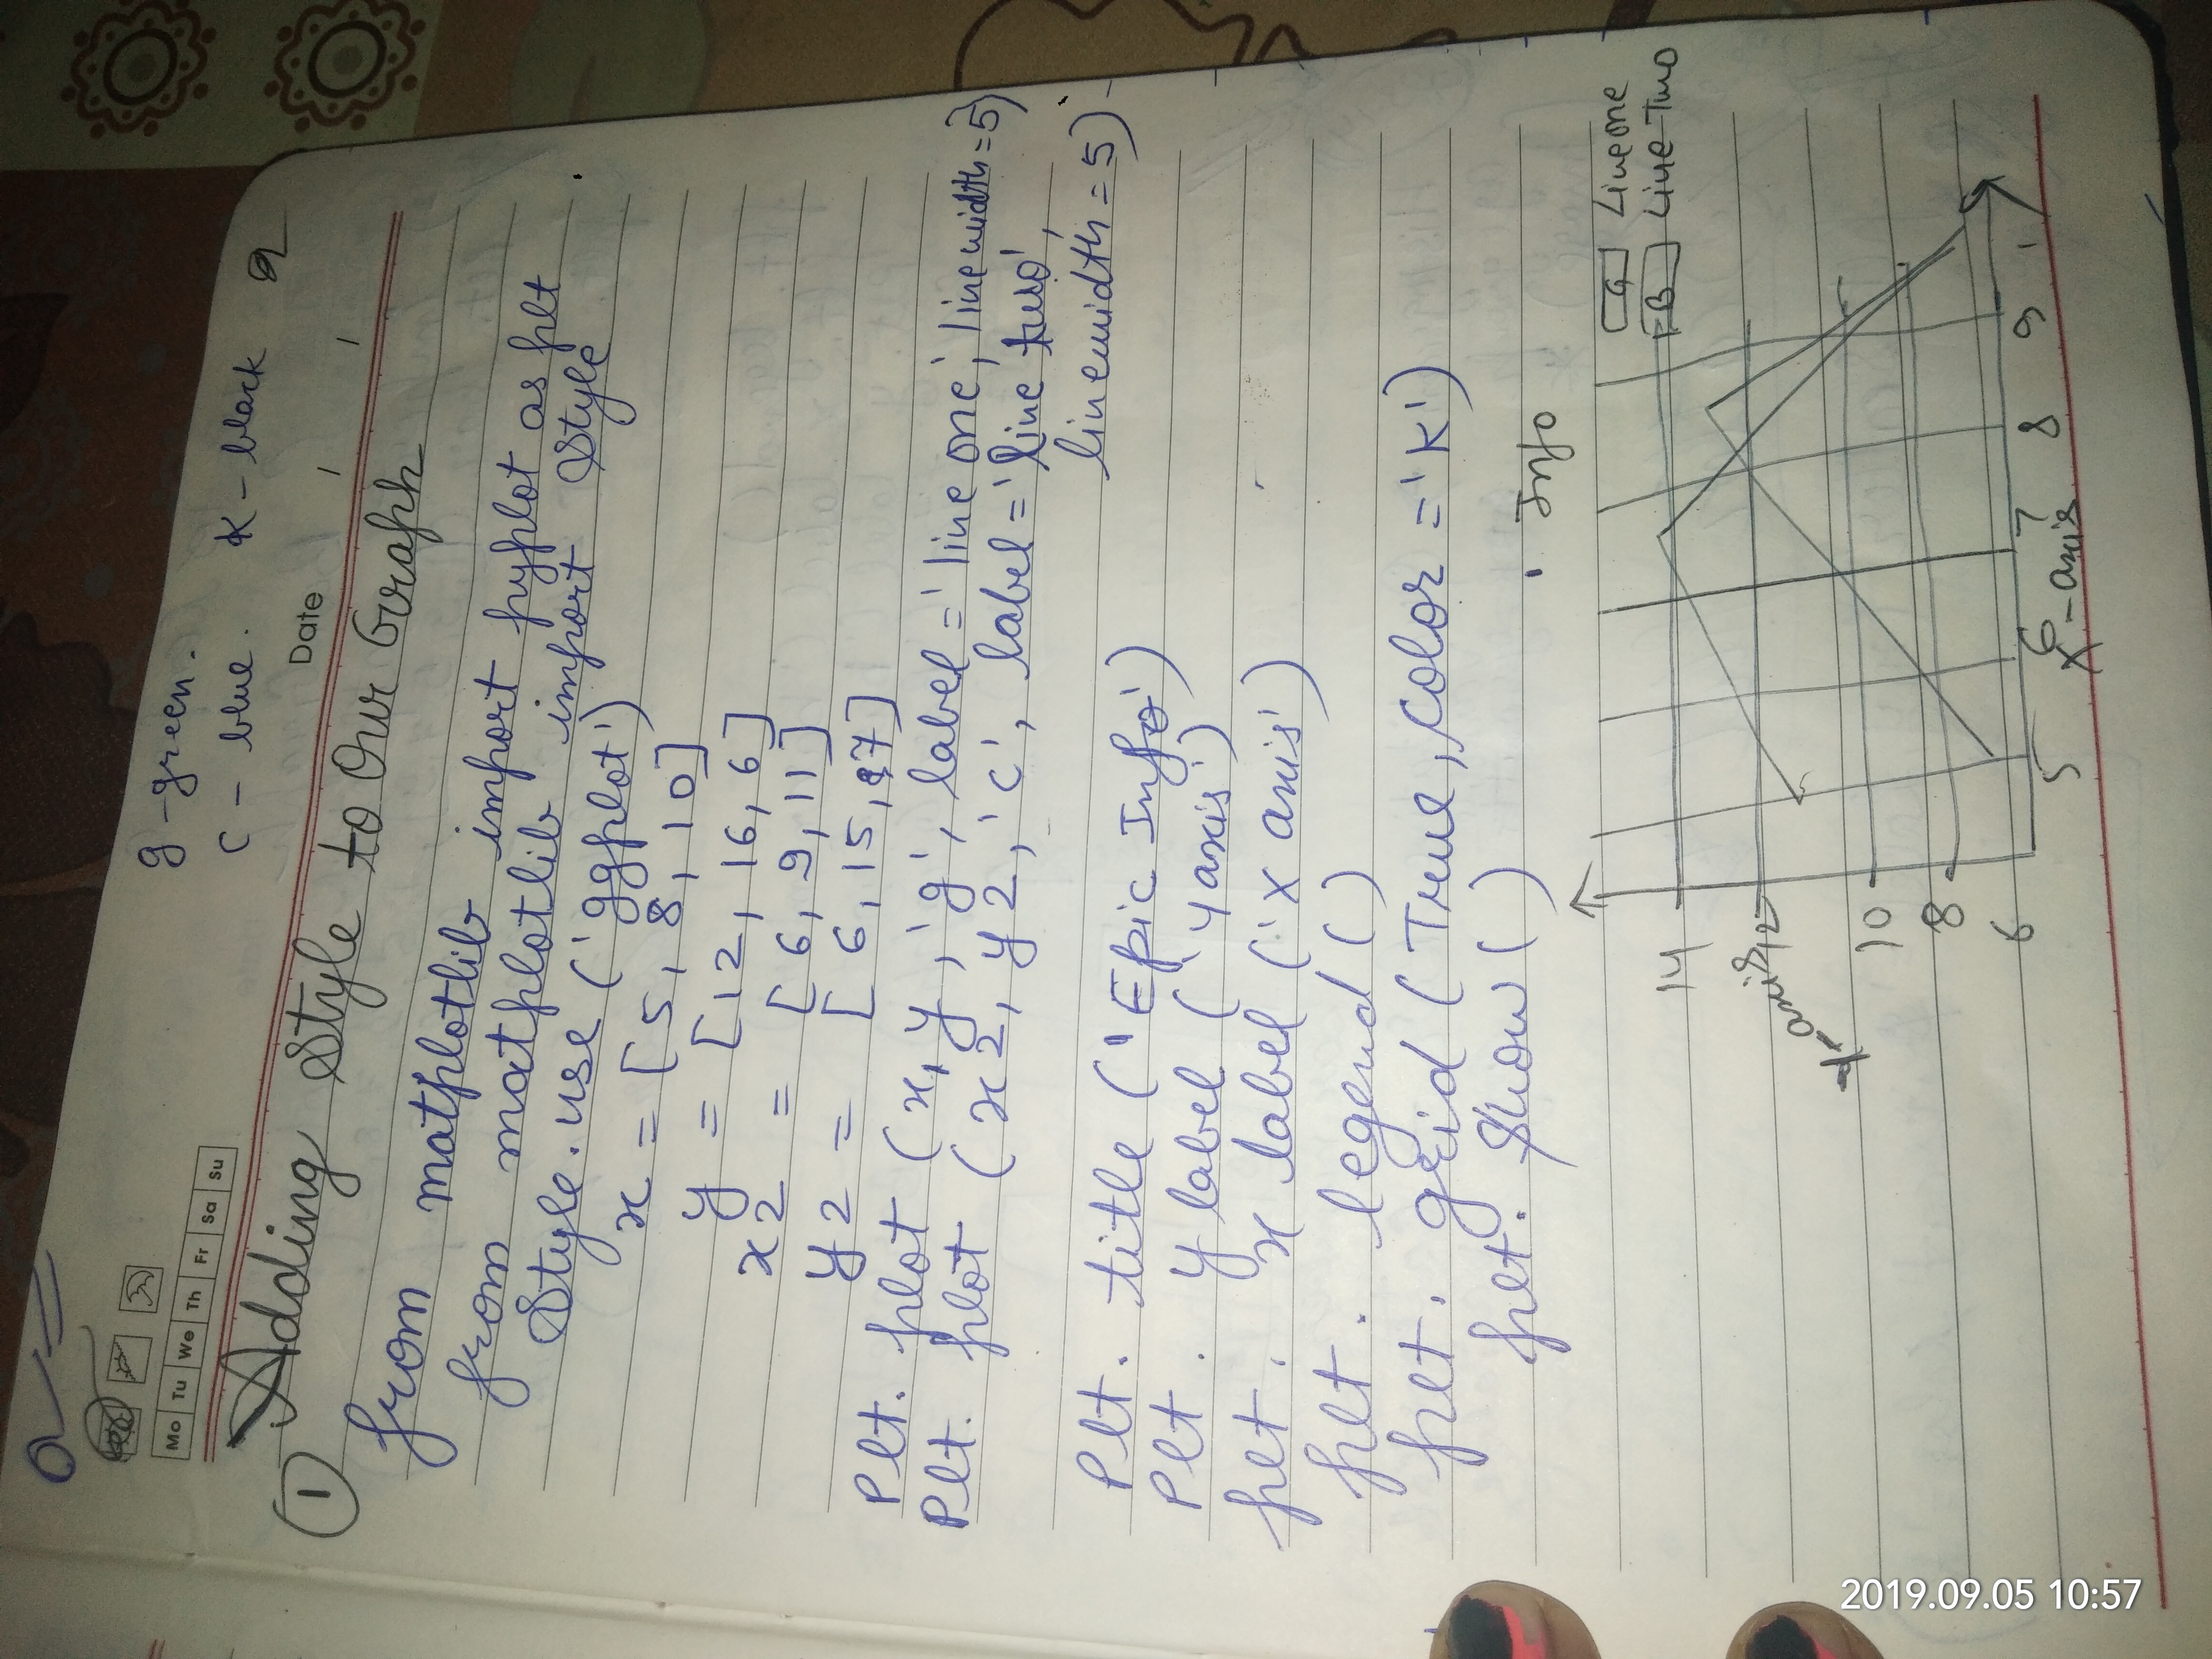 g - green.
c - blue. K - black
Mo Tu We Th Fr Sa Su
Date
① Adding Style to Our Graph
from matplotlib import pyplot as plt
from matplotlib import Style
Style.use ('ggplot')
x = [5, 8, 10]
y = [12, 16, 6]
x2 = [6, 9, 11]
y2 = [6, 15, 7]
Plt. plot (x, y, 'g', label = 'line one', linewidth = 5)
Plt. plot (x2, y2, 'c', label = 'line two',
linewidth = 5)
Plt. title ('Epic Info')
Plt. y label ('y axis')
plt. x label ('x axis')
plt. legend ()
plt. grid (True, color = 'K')
plt. Show ()
Info
G Line one
B Line Two
14
axis 12
10
8
6
5 6 7 8 9
X-axis
2019.09.05 10:57